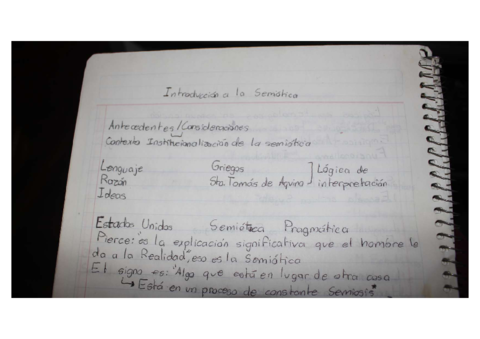 Introducción a la Semiótica
Antecedentes/Consideraciones
Contexto Institucionalización de la semiótica
Lenguaje Griegos ] Lógica de
Razón Sto. Tomás de Aquino interpretación
Ideas
Estados Unidos Semiótica Pragmática
Pierce: "es la explicación significativa que el hombre le
da a la Realidad", eso es la Semiótica
El signo es: "Algo que está en lugar de otra cosa
↳ Está en un proceso de constante Semiosis"